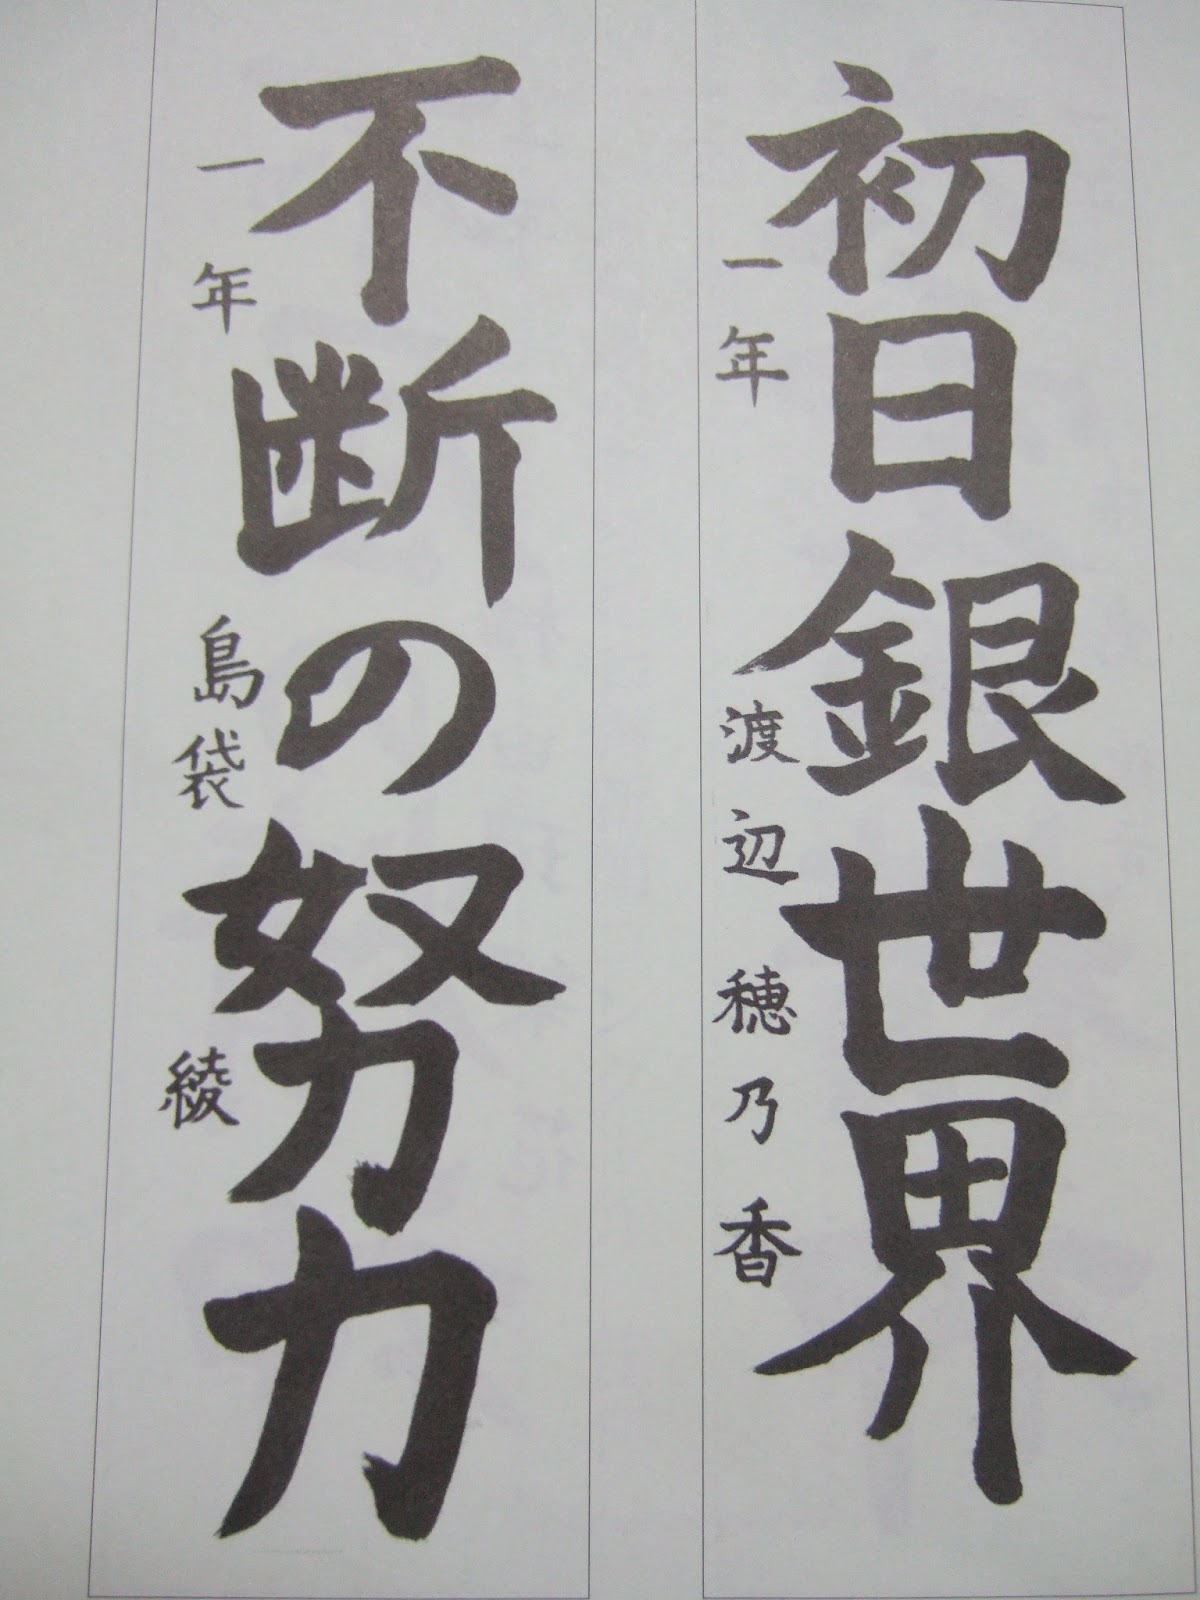 初日銀世界
一年 渡辺 穂乃香
不断の努力
一年 島袋 綾